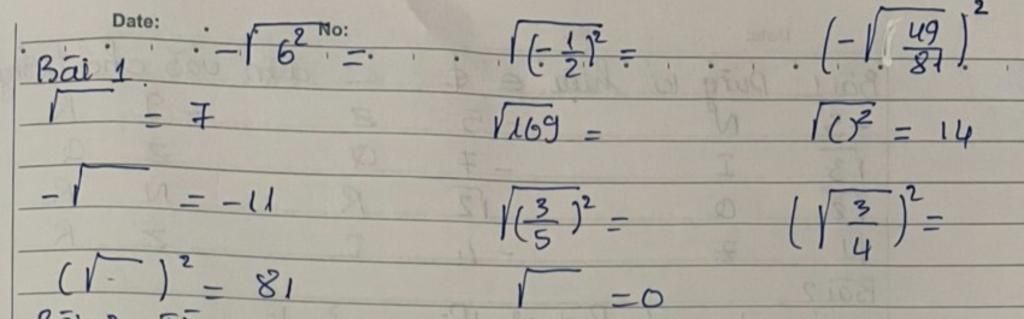 Date: No:
Bài 1 -√6² = √(-1/2)² = (-√49/81)²
√ = 7 √169 = √()² = 14
-√ = -11 √(3/5)² = (√3/4)² =
(√ )² = 81 √ = 0